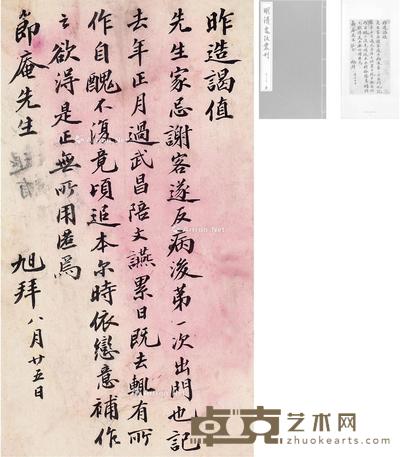 昨造謁值
先生家忌謝客遂反病後第一次出門也記
去年正月過武昌陪文讌累日既去輒有所
作自醜不復竟頃追本尔時依戀意補作
之欲得是正無所用匿焉
節庵先生
旭拜 八月廿五日
明清名人書札叢刊
卓克艺术网
www.zhuokearts.com